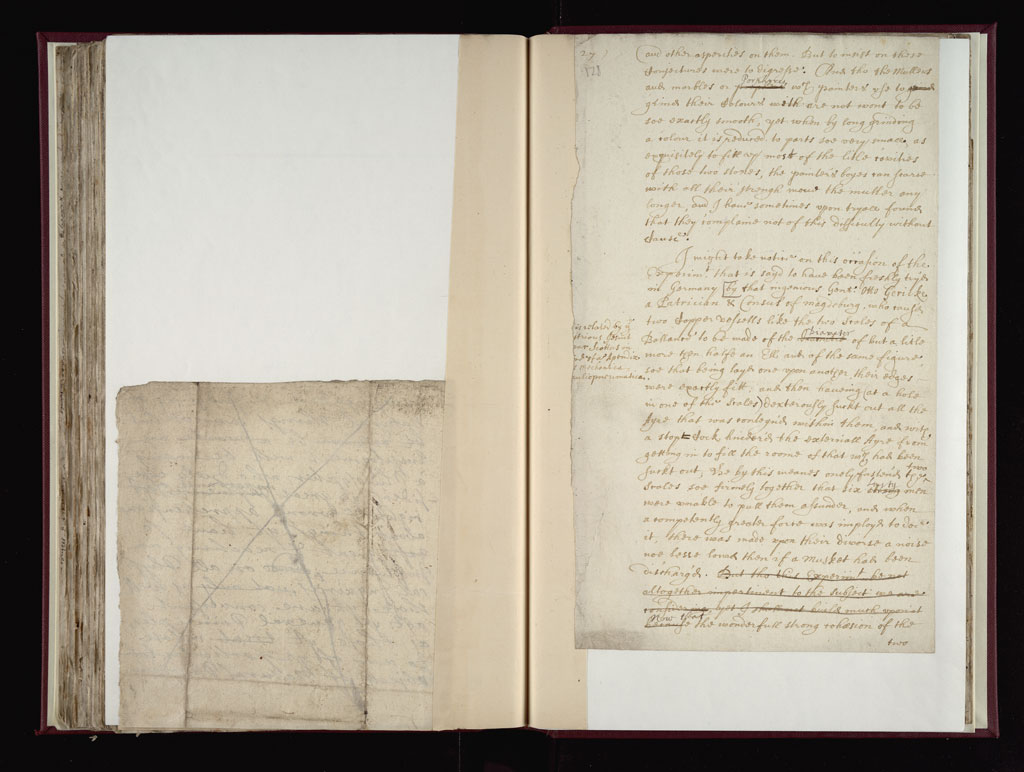 27)
(and other asperities on them. But to insist on these
Conjectures were to digresse. And tho the Mullers
and marbles or Porphyries wch painters use to
grind their Colours with are not wont to be
soe exactly smooth, yet when by long grinding
a colour it is reduced to parts soe very small, as
exquisitely to fill up most of the litle cavities
of those two stones, the painters boyes can scarse
with all their strengh move the muller any
longer, and I have sometimes upon tryall found
that they complaine not of this difficulty without
Cause.
I might take notice on this occasion of the
Experimt that is sayd to have been freshly tryed
in Germany by that ingenious Gentn Otto Gerike
a Patrician & Consul of Magdburg, who caused
two Copper vessells like the two Scales of a
Ballance to be made of the Diameter of but a litle
more then halfe an Ell and of the same figure
soe that being layd one upon another their edges
were exactly fitt, and then haveing (at a hole
in one of the Scales) dexterously suckt out all the
Ayre that was conteyned within them, and with
a stop Cock hindered the externall Ayre from
getting in to fill the roome of that wch had been
suckt out, Hee by this meanes onely fastened the two
Scales soe firmely together that six strong men
were unable to pull them assunder, and when
a competently greater force was imployd to doe
it, there was made upon their divorse a noise
noe lesse loud then if a Musket had been
discharged. But tho this Experimt be not
altogether impertinent to the Subject we are
considering yet I shall not build much upon it
Now that
because the wonderfull strong cohæsion of the
two
is related by ye